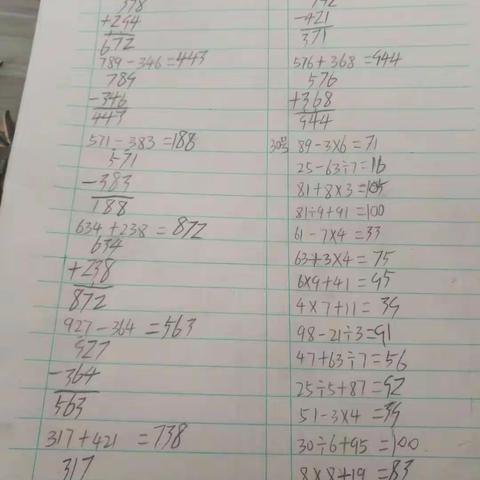 378
+294
672
789-346=443
789
-346
443
571-383=188
571
-383
188
634+238=872
634
+238
872
927-364=563
927
-364
563
317+421=738
317
-421
371
576+368=944
576
+368
944
30号 89-3×6=71
25-63÷7=16
81+8×3=105
81÷9+91=100
61-7×4=33
63+3×4=75
6×9+41=95
4×7+11=39
98-21÷3=91
47+63÷7=56
25÷5+87=92
51-3×4=39
30÷6+95=100
8×8+19=83